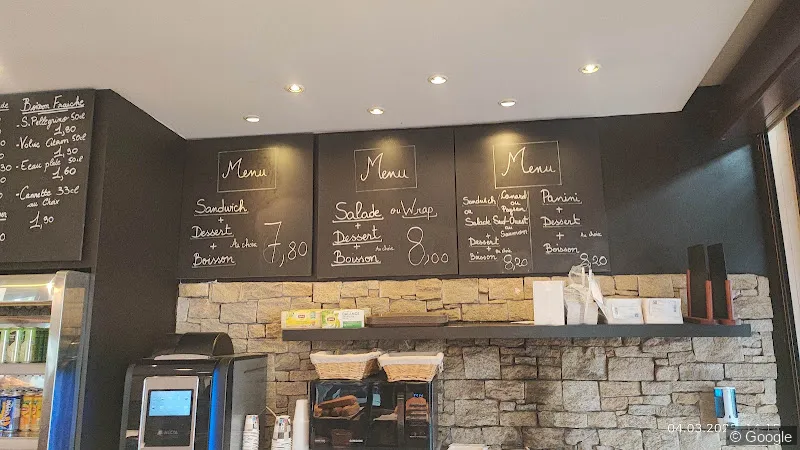 Boisson Fraîche
- S. Pellegrino 50cl
1,90
- Volvic Citron 50cl
1,90
- Eau plate 50cl
1,60
- Cannette 33cl
au Choix
1,90
Menu
Sandwich
+
Dessert
+ Au choix
Boisson
7,80
Menu
Salade ou Wrap
+
Dessert
+ Au choix
Boisson
8,00
Menu
Sandwich / Canard
ou
ou
Salade Sud-Ouest
ou
Saumon
+
Dessert
+
Boisson 8,20
Panini
+
Dessert
+ Au choix
Boisson
8,20
04.03.20
© Google